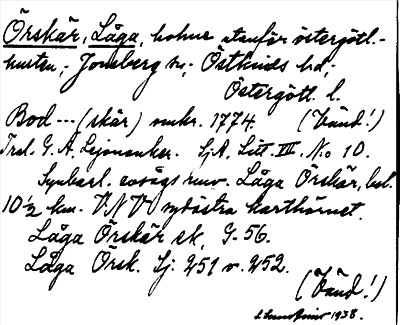 Örskär, Låga, holme utanför östergötl.-
kusten, Jonsberg sn, Östkinds hd,
Östergötl. l.
Bod --- (skär) omkr. 1774. (Vänd!)
Trol. G. A. Lejonanker. SjA, Litt. VIII. No 10.
Synbarl. avsägs nuv. Låga Örskär, bel.
10½ km. VNV sydöstra karthörnet.
Låga Örskär sk. G. 56.
Låga Örsk. Sj. 251 o. 252.
(Vänd!)
1938.